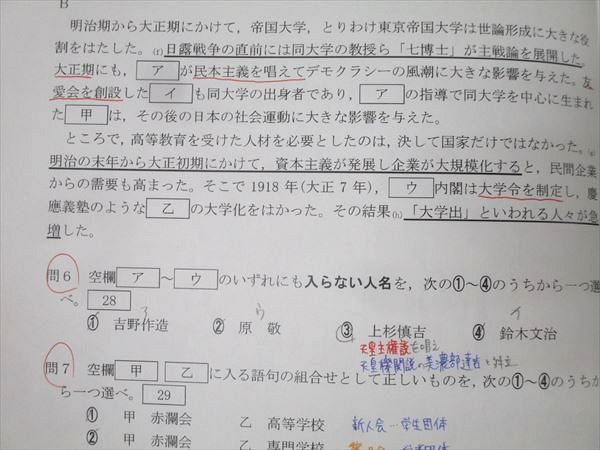 B
明治期から大正期にかけて，帝国大学，とりわけ東京帝国大学は世論形成に大きな役
割をはたした。(f)日露戦争の直前には同大学の教授ら「七博士」が主戦論を展開した。
大正期にも，アが民本主義を唱えてデモクラシーの風潮に大きな影響を与えた。友
愛会を創設したイも同大学の出身者であり，アの指導で同大学を中心に生まれ
た甲は，その後の日本の社会運動に大きな影響を与えた。
ところで，高等教育を受けた人材を必要としたのは，決して国家だけではなかった。(g)
明治の末年から大正初期にかけて，資本主義が発展し企業が大規模化すると，民間企業
からの需要も高まった。そこで1918年(大正7年)，ウ内閣は大学令を制定し，慶
應義塾のような乙の大学化をはかった。その結果(h)「大学出」といわれる人々が急
増した。
問6 空欄ア～ウのいずれにも入らない人名を，次の①～④のうちから一つ選
べ。28
ア ウ イ
① 吉野作造 ② 原 敬 ③ 上杉慎吉 ④ 鈴木文治
天皇主権説を唱え
天皇機関説の美濃部達吉と対立
問7 空欄甲 乙に入る語句の組合せとして正しいものを，次の①～④のうちか
ら一つ選べ。29
① 甲 赤瀾会 乙 高等学校 新人会…学生団体
② 甲 赤瀾会 乙 専門学校